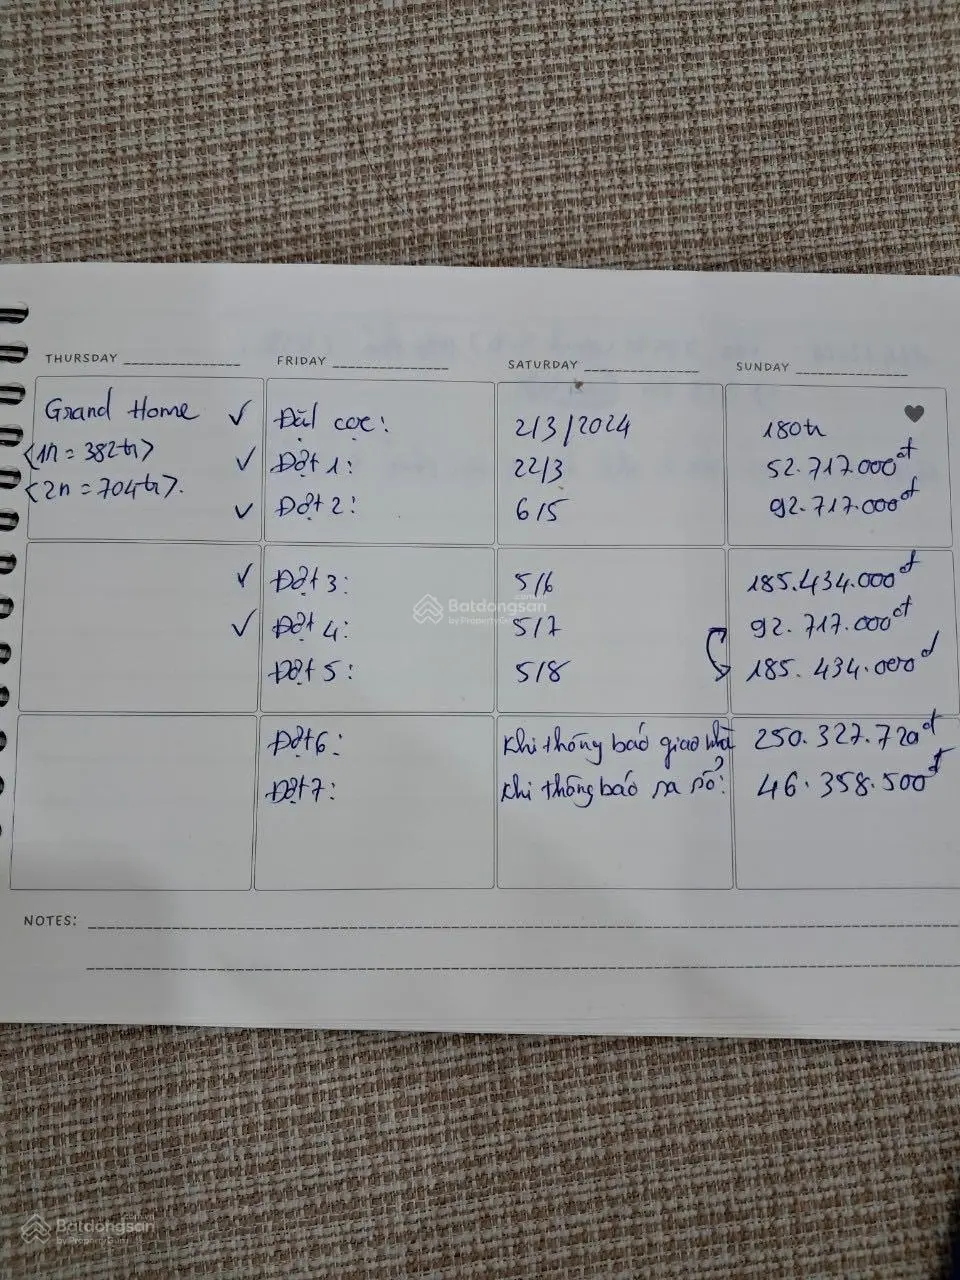 THURSDAY FRIDAY SATURDAY SUNDAY
Grand Home ✓ Đặt cọc: 2/3/2024 180tr
<1n = 382tr> ✓ Đợt 1: 22/3 52.717.000đ
<2n = 704tr>. ✓ Đợt 2: 6/5 92.717.000đ
✓ Đợt 3: 5/6 185.434.000đ
✓ Đợt 4: 5/7 92.717.000đ
Đợt 5: 5/8 185.434.000đ
Đợt 6: Khi thông báo giao nhà 250.327.720đ
Đợt 7: Khi thông báo ra sổ: 46.358.500đ
NOTES:
Batdongsan.com.vn
by PropertyGuru
Batdongsan.com.vn
by PropertyGuru